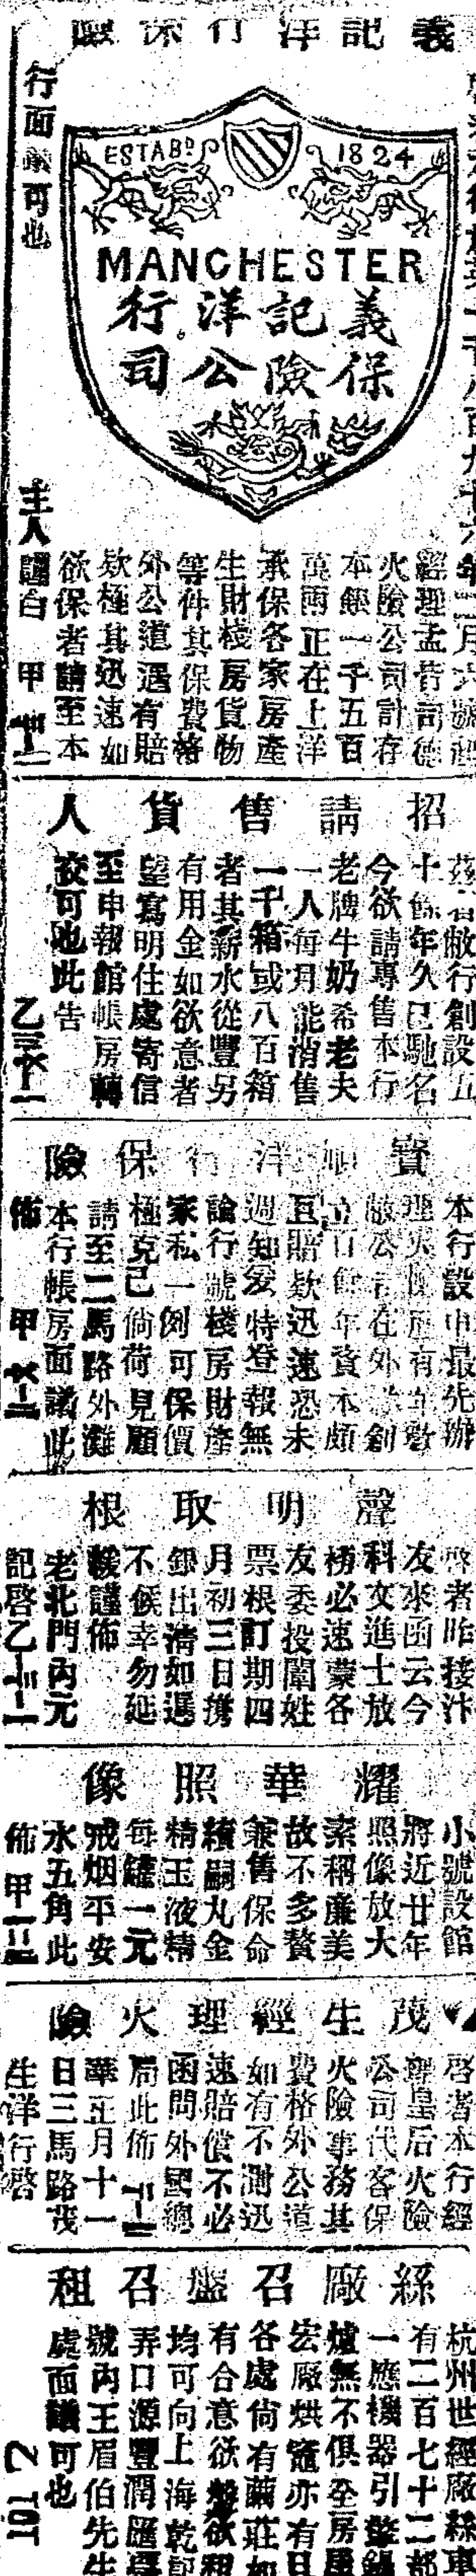 義記洋行保險
ESTABD 1824
MANCHESTER
義記洋行
保險公司
經理孟昔司德
火險公司計存
本銀一千五百
萬兩正在上洋
承保各家房產
生財棧房貨物
等件其保費格
外公道遇有賠
欵極其迅速如
欲保者請至本
行面議可也
主人謹白 甲
招請售貨人
茲者敝行創設五
十餘年久已馳名
今欲請專售本行
老牌牛奶希老夫
一人每月能消售
一千箱或八百箱
者其薪水從豐另
有用金如欲意者
望寫明住處寄信
至申報館帳房轉
交可也此告
寶順洋行保險
本行設申最先辦
理火險
公司在外洋創
立百餘年資本頗
巨賠欵迅速恐未
週知爰特登報無
論行號棧房財產
家私一例可保價
極克己倘荷見顧
請至二馬路外灘
本行帳房面議此
佈 甲
聲明取根
啓者昨接汴
友來函云今
科文進士放
榜必速蒙各
友委投闈姓
票根訂期四
月初三日携
銀出清如遲
不候幸勿延
緩謹佈
老北門內元
記啓
耀華照像
小號設館
將近廿年
照像放大
素稱廉美
故不多贅
兼售保命
續嗣丸金
精玉液精
每罐一元
戒烟平安
水五角此
佈 甲
茂生經理火險
啓者本行經
理皇后火險
公司代客保
火險事務其
費格外公道
如有不測迅
速賠償不必
函問外國總
局此佈
華正月十一
日三馬路茂
生洋行啓
絲廠召盤召租
杭州世經廠絲車
有二百七十二部
一應機器引擎鍋
爐無不俱全房屋
宏廠烘竈亦有
各處倘有繭莊如
有合意欲盤欲租
均可向上海乾記
弄口源豐潤匯號
號內王眉伯先生
處面議可也